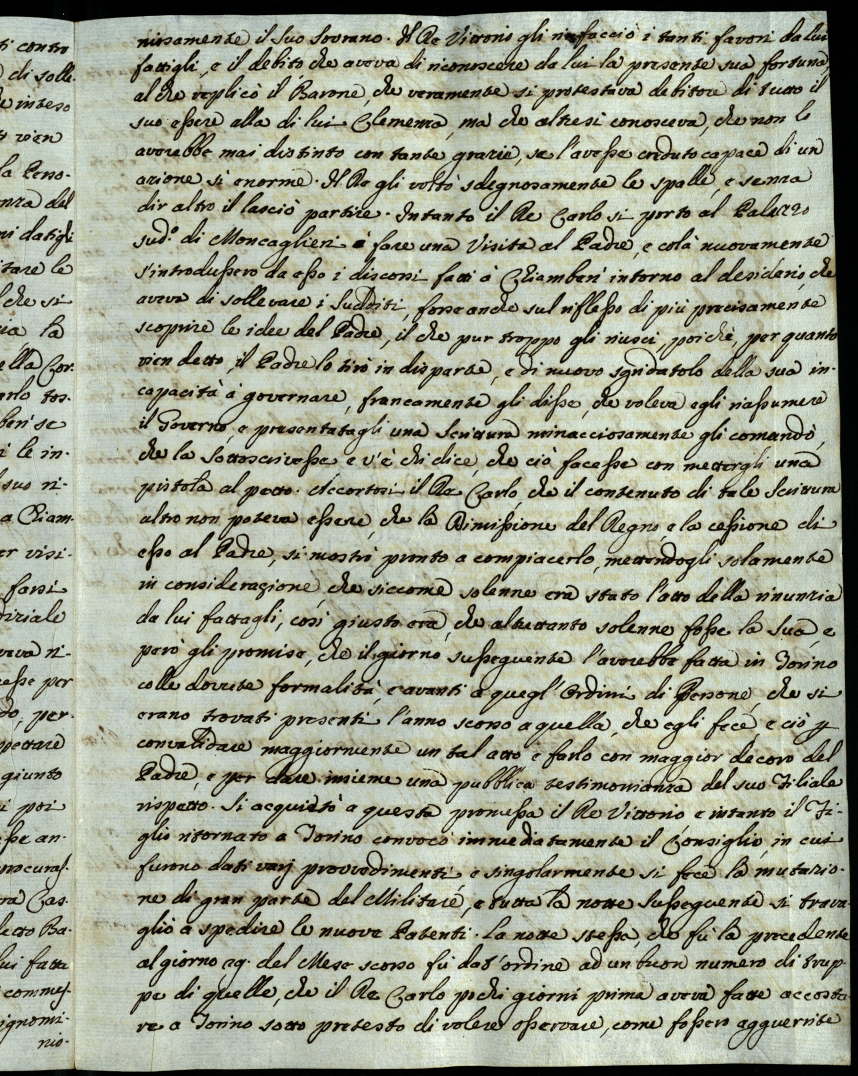 ti contro
di solle-
de inteso
vien
la Perso-
nza del
ni datigli
itare le
che si
ria la
ella Cor-
arlo tos-
beri se
i le in-
suo ri-
a Ciam-
er visi-
farsi
diziale
veva ri-
cesse per
do, per-
spettare
giunto
i poi
esse an-
procuras-
ra Cas-
detto Ba-
lui fatta
commes-
ignomi-
nio-
niosamente il suo Sovrano. Il Re Vittorio gli rinfacciò i tanti favori da lui
fattigli, e il debito che aveva di riconoscere da lui la presente sua fortuna,
al che replicò il Barone, che veramente si protestava debitore di tutto il
suo essere alla di lui Clemenza, ma che altresi conosceva, che non lo
averebbe mai distinto con tante grazie, se l'avesse creduto capace di un
azione si enorme. Il Re gli voltò sdegnosamente le spalle, e senza
dir altro il lasciò partire. Intanto il Re Carlo si portò al Palazzo
sud.º di Moncaglieri à fare una Visita al Padre, e colà nuovamente
s'introdussero da esso i discorsi fatti à Chiamberi intorno al desiderio, che
aveva di sollevare i sudditi, forse anche sul riflesso di più precisamente
scoprire le idee del Padre, il che pur troppo gli riuscì, poiche, per quanto
vien detto, il Padre lo tirò in disparte, e di nuovo sgridatolo della sua in-
capacità à governare, francamente gli disse, che voleva egli riassumere
il Governo, e presentatagli una Scrittura minacciosamente gli comandò,
che la sottoscrivesse e v'è chi dice, che ciò facesse con mettergli una
pistola al petto. Accortosi il Re Carlo che il contenuto di tale Scrittura
altro non poteva essere, che la Dimissione del Regno, e la cessione di
esso al Padre, si mostrò pronto a compiacerlo, mettendogli solamente
in considerazione, che siccome solenne era stato l'atto della rinunzia
da lui fattagli, così giusto era, che altrettanto solenne fosse la sua, e
però gli promise, che il giorno susseguente l'averebbe fatta in Torino
colle dovute formalità, e avanti a quegl'Ordini di Persone, che si
erano trovati presenti l'anno scorso a quella, che egli fece, e ciò p
convalidare maggiormente un tal atto e farlo con maggior decoro del
Padre, e per dare insieme una pubblica testimonianza del suo Filiale
rispetto. Si acquietò a questa promessa il Re Vittorio e intanto il Fi-
glio ritornato a Torino convocò immediatamente il Consiglio, in cui
furono dati varj provvedimenti e singolarmente si fece la mutazio-
ne di gran parte del Militare, e tutta la notte susseguente si trava-
gliò a spedire le nuove Patenti. La notte stessa, che fù la precedente
al giorno 29. del Mese scorso fù dat'ordine ad un buon numero di trup-
pe di quelle, che il Re Carlo pochi giorni prima aveva fatte accosta-
re a Torino sotto pretesto di volere osservare, come fossero agguerrite